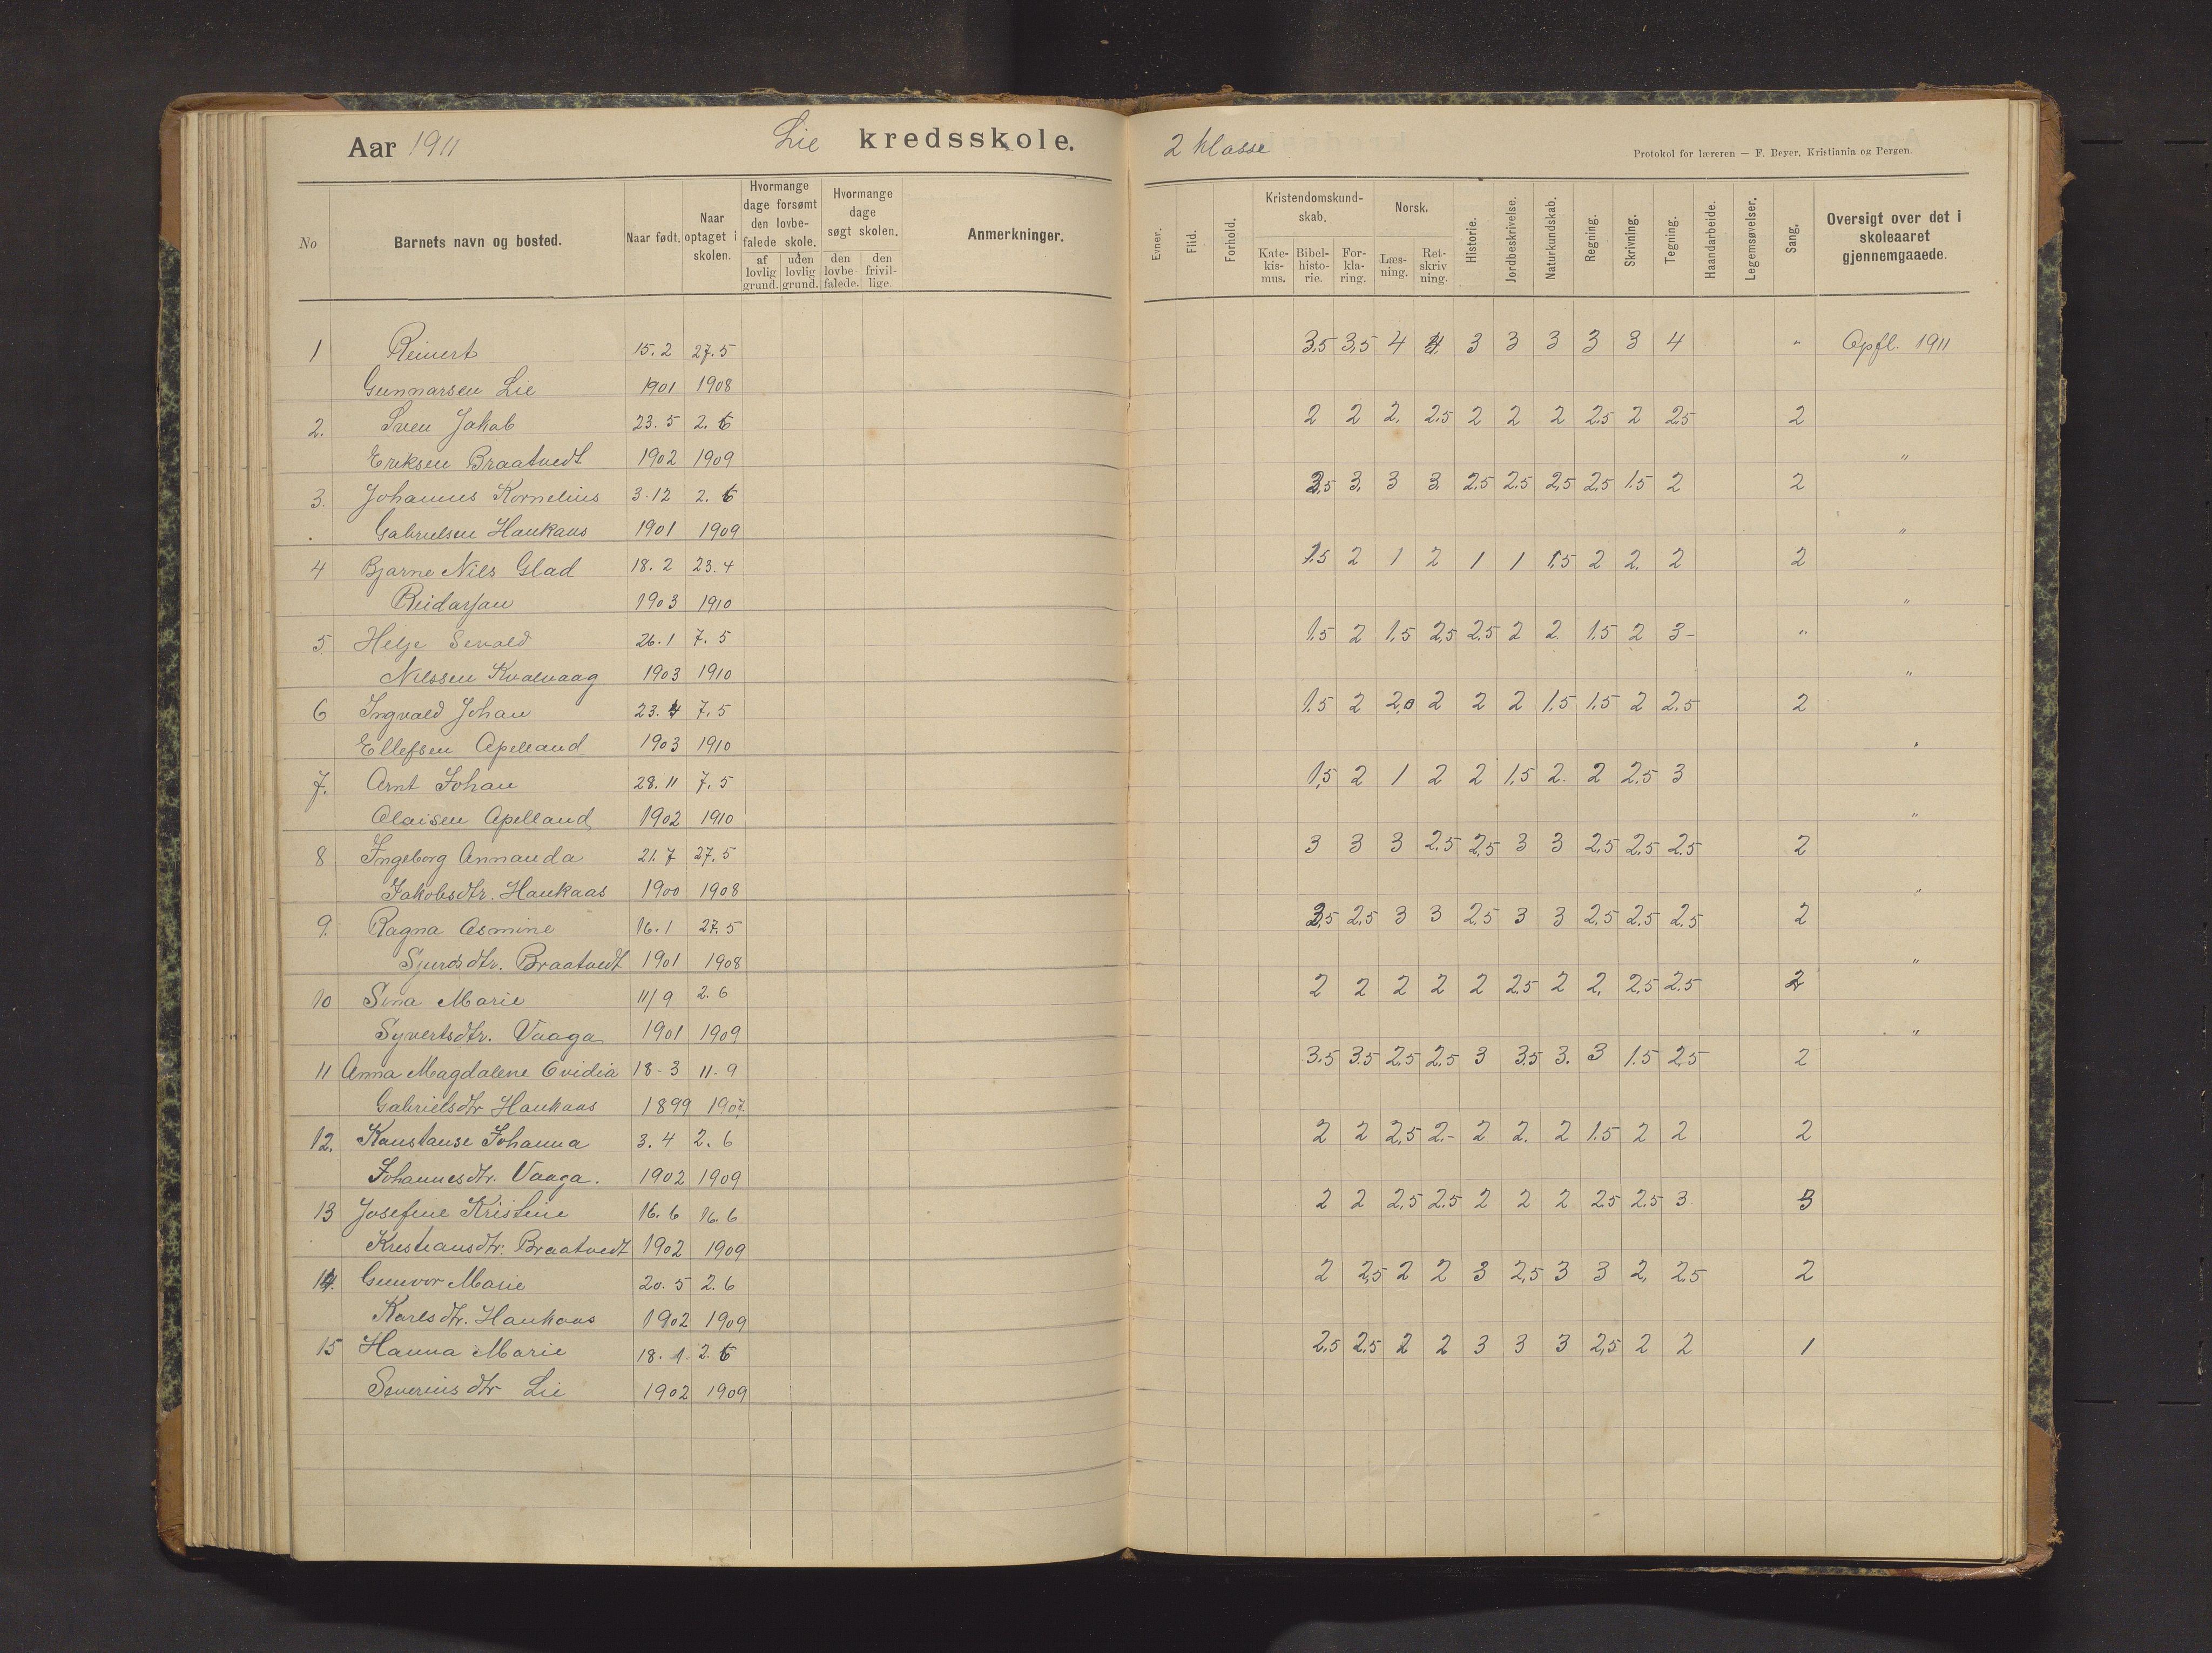 Aar 1911 Lie kredsskole.
No Barnets navn og bosted. Naar født. Naar optaget i skolen. Hvormange dage forsømt den lovbefalede skole. af lovlig grund. uden lovlig grund. Hvormange dage søgt skolen. den lovbefalede. den frivillige. Anmerkninger.
1 Reinert 15.2 27.5
Gunnarsen Lie 1901 1908
2. Sven Jakob 23.5 2.6
Eriksen Braatvedt 1902 1909
3. Johannes Kornelius 3-12 2.6
Gabrielsen Haukaas 1901 1909
4 Bjarne Nils Glad 18.2 23.4
1903 1910
5 Helje Sevald 26.1 7.5
Nilssen Kvalvaag 1903 1910
6 Ingvald Johan 23.4 7.5
Ellefsen Apelland 1903 1910
7. Arnt Johan 28.11 7.5
Olaisen Apelland 1902 1910
8 Ingeborg Annanda 21.7 27.5
Jakobsdtr. Haukaas 1900 1908
9. Ragna Osmine 16.1 27.5
Sjursdtr. Braatvedt 1901 1908
10 Sina Marie 11/9 2.6
Syvertsdtr. Vaaga 1901 1909
11 Anna Magdalene Ovidia 18-3 11-9
Gabrielsdtr Haukaas 1899 1907.
12. Konstanse Johanna 3.4 2.6
Johannesdtr. Vaaga. 1902 1909
13 Josefine Kristine 16.6 16.6
Kristiansdtr. Braatvedt 1902 1909
14. Gunvor Marie 20.5 2.6
Karlsdtr. Haukaas 1902 1909
15 Hanna Marie 18.1 2.6
Severinsdtr Lie 1902 1909
2 klasse
Protokol for læreren — F. Beyer, Kristiania og Bergen.
Evner. Flid. Forhold. Kristendomskundskab. Katekismus. Bibelhistorie. Forklaring. Norsk. Læsning. Retskrivning. Historie. Jordbeskrivelse. Naturkundskab. Regning. Skrivning. Tegning. Haandarbeide. Legemsøvelser. Sang. Oversigt over det i skoleaaret gjennemgaaede.
3,5 3,5 4 4 3 3 3 3 3 4 " Opfl. 1911
2 2 2. 2,5 2 2 2 2,5 2 2,5 2
"
3,5 3. 3 3. 2,5 2,5 2,5 2,5 1.5 2 2
"
1.5 2 1 2 1 1 1.5 2 2. 2 2
"
1.5 2 1.5 2,5 2.5 2 2. 1.5 2 3- "
"
1.5 2 2,0 2 2 2 1.5 1.5 2 2.5 2
"
1,5 2 1 2 2 1,5 2. 2 2.5 3
"
3 3 3 2.5 2,5 3 3 2,5 2,5 2.5 2
"
3,5 2,5 3 3 2,5 3 3 2,5 2.5 2.5 2
"
2 2 2 2 2 2,5 2 2. 2,5 2.5 2
"
3,5 3.5 2,5 2,5 3 3.5 3. 3 1.5 2,5 2
2 2 2,5 2.- 2 2. 2 1.5 2 2 2
2 2 2,5 2.5 2 2 2 2,5 2.5 3. 3
2 2,5 2 2 3 2,5 3 3 2. 2,5 2
2,5 2,5 2 2 3 3 3 2,5 2 2 1